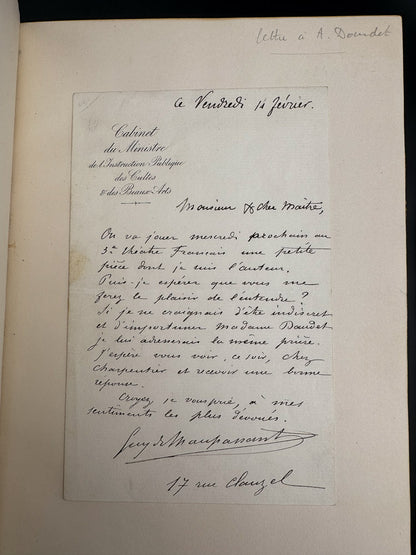 lettre à A. Daudet
Ce Vendredi 14 février.
Cabinet
du Ministre
de l'Instruction Publique
des Cultes
& des Beaux-Arts
Monsieur & cher Maître,
On va jouer mercredi prochain au
3e théâtre Français une petite
pièce dont je suis l'auteur.
Puis-je espérer que vous me
ferez le plaisir de l'entendre ?
Si je ne craignais d'être indiscret
et d'importuner Madame Daudet
je lui adresserais la même prière.
J'espère vous voir, ce soir, chez
Charpentier et recevoir une bonne
réponse.
Croyez, je vous prie, à mes
sentiments les plus dévoués.
Guy de Maupassant
17 rue Clauzel